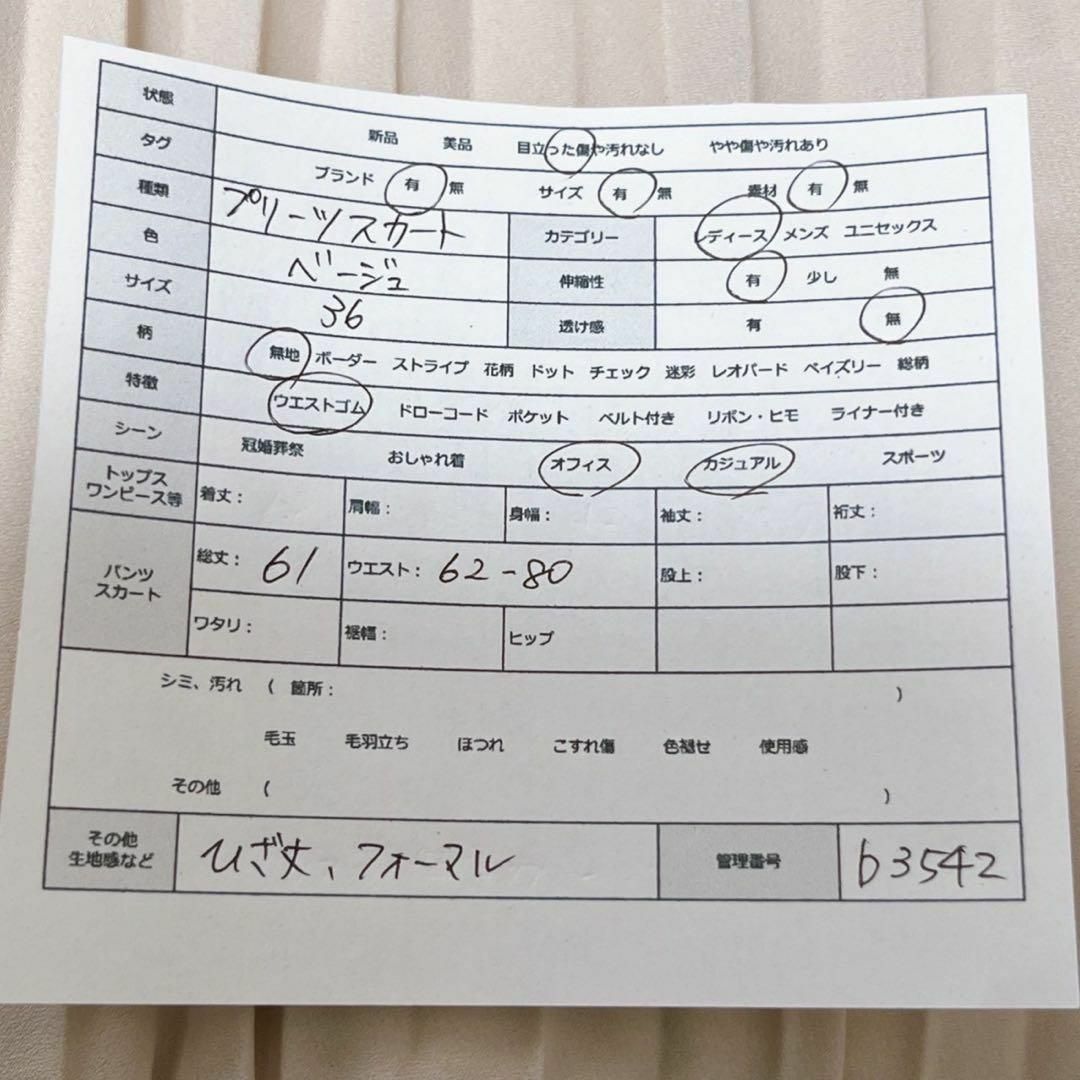 状態 新品 美品 目立った傷や汚れなし やや傷や汚れあり
タグ ブランド 有 無 サイズ 有 無 素材 有 無
種類 プリーツスカート カテゴリー レディース メンズ ユニセックス
色 ベージュ 伸縮性 有 少し 無
サイズ 36 透け感 有 無
柄 無地 ボーダー ストライプ 花柄 ドット チェック 迷彩 レオパード ペイズリー 総柄
特徴 ウエストゴム ドローコード ポケット ベルト付き リボン・ヒモ ライナー付き
シーン 冠婚葬祭 おしゃれ着 オフィス カジュアル スポーツ
トップス
ワンピース等 着丈: 肩幅: 身幅: 袖丈: 裄丈:
パンツ
スカート 総丈: 61 ウエスト: 62-80 股上: 股下:
ワタリ: 裾幅: ヒップ
シミ、汚れ ( 箇所: )
毛玉 毛羽立ち ほつれ こすれ傷 色褪せ 使用感
その他 ( )
その他
生地感など ひざ丈、フォーマル 管理番号 b3542